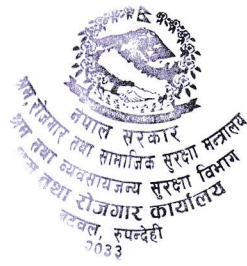 नेपाल सरकार
श्रम, रोजगार तथा सामाजिक सुरक्षा मन्त्रालय
श्रम तथा व्यवसायजन्य सुरक्षा विभाग
श्रम तथा रोजगार कार्यालय
बुटवल, रुपन्देही
२०३३